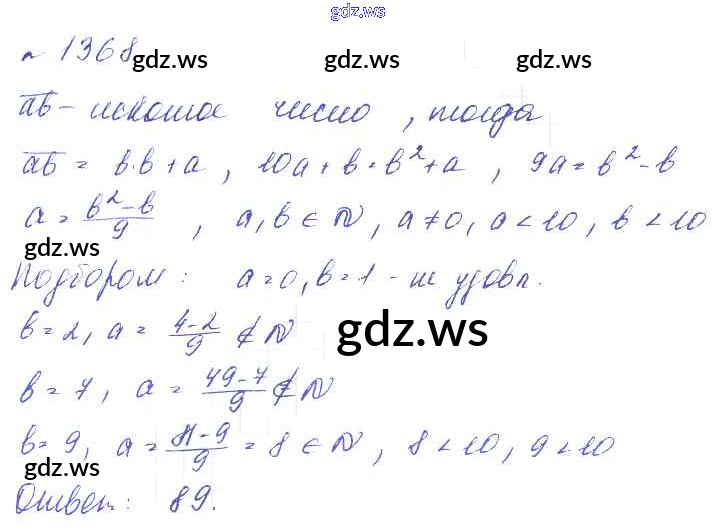 gdz.ws
№ 1368
gdz.ws gdz.ws gdz.ws
ab - искомое число, тогда
ab = b·b + a, 10a + b = b² + a, 9a = b² - b
a = (b² - b)/9, a, b ∈ N, a ≠ 0, a < 10, b < 10
gdz.ws gdz.ws
Подбором: a = 0, b = 1 - не удовл.
b = 2, a = (4 - 2)/9 ∉ N
gdz.ws
b = 7, a = (49 - 7)/9 ∉ N
b = 9, a = (81 - 9)/9 = 8 ∈ N, 8 < 10, 9 < 10
gdz.ws gdz.ws gdz.ws
Ответ: 89.